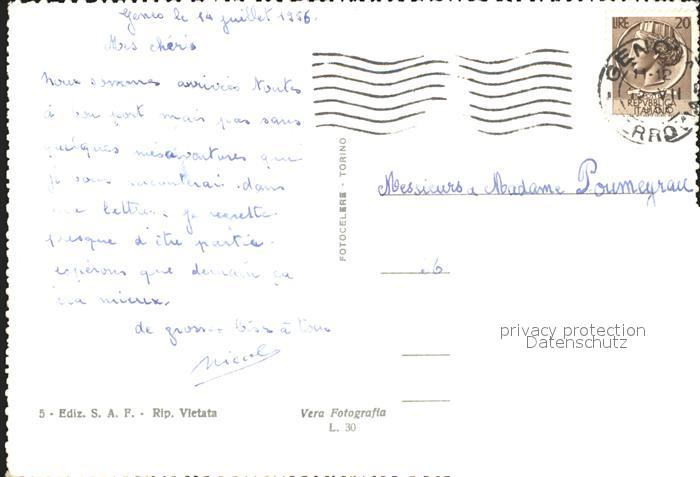 Genes le 14 juillet 1956.
Mes chéris
Nous sommes arrivés toutes
à bon port mais pas sans
quelques mésaventures que
je vous raconterai dans
une lettre. Je regrette
presque d'être partie.
espérons que demain ça
ira mieux.
de grosses bises à tous
Nicole
5 - Ediz. S. A. F. - Rip. Vietata
Vera Fotografia
L. 30
FOTOCELERE - TORINO
LIRE 20
REPVBBLICA
ITALIANA
GENOVA
FERROVIA
Messieurs & Madame Poumeyrau
16
privacy protection
Datenschutz